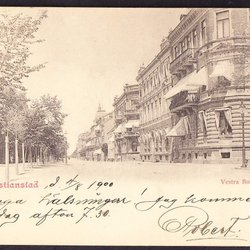 stianstad
Vestra Bou
d. 2/8 1900
aga Hälsningar! Jag komme
dag afton 7.30.
Robert.